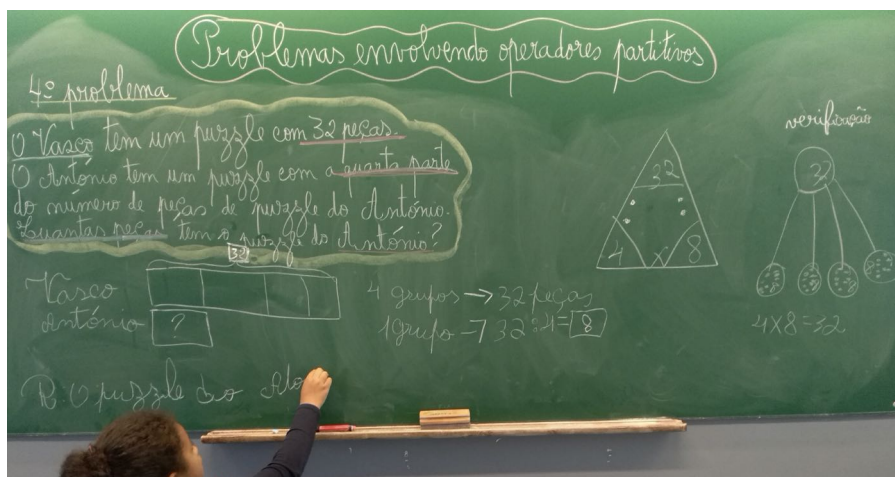 Problemas envolvendo operadores partitivos
4º problema
O Vasco tem um puzzle com 32 peças.
O António tem um puzzle com a quarta parte
do número de peças de puzzle do António.
Quantas peças tem o puzzle do António?
32
Vasco
António ?
4 grupos → 32 peças
1 grupo → 32:4=8
R: O puzzle do
32
4 x 8
verificação
32
4x8=32